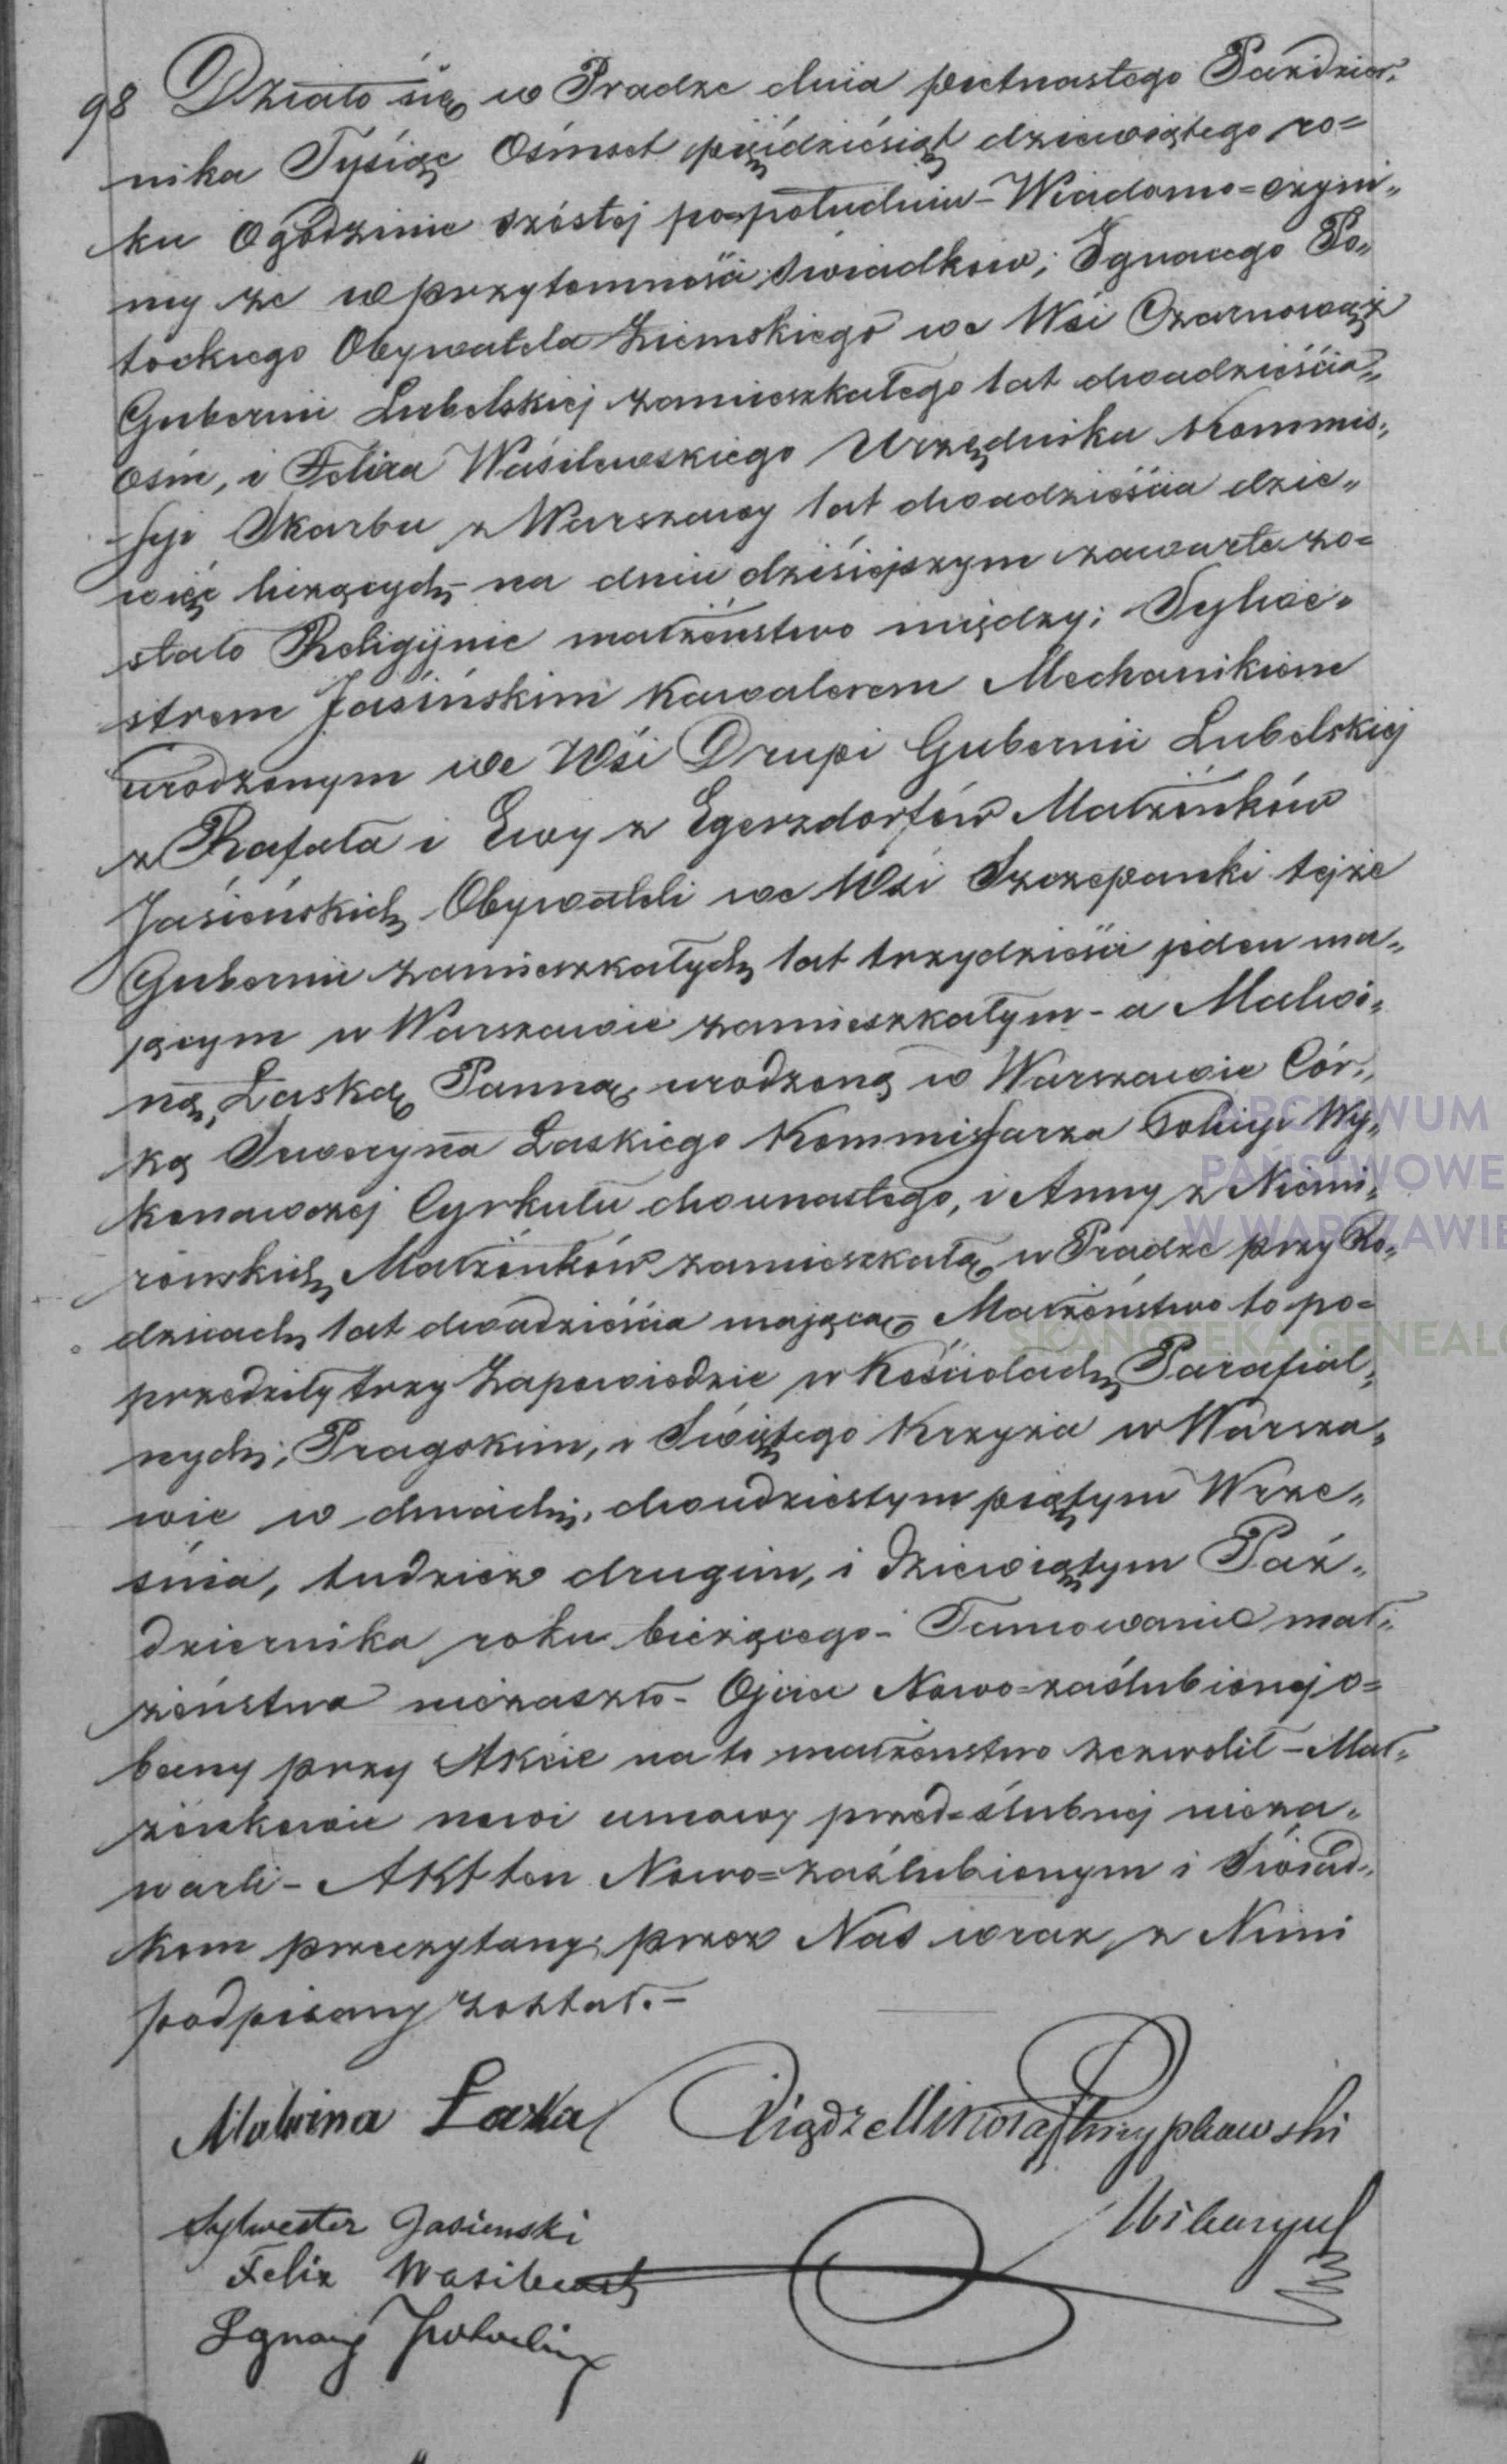 98 Działo się w Pradze dnia pietnastego Paździer„
nika Tysiąc Ośmset pięćdziésiąt dziewiątego ro=
ku o godzinie szóstej po południu – Wiadomo = czyni„
my że w przytomności świadków; Ignacego Po„
tockiego Obywatela Ziemskiego we Wsi Czarnowąż
Gubernii Lubelskiej zamieszkałego lat dwadzieścia„
ośm, i Felixa Wasilewskiego Urzędnika Kommis„
syi Skarbu z Warszawy lat dwadzieścia dzie„
więć liczących, na dniu dzisiejszym zawarte zo=
stało Religijnie małżeństwo między; Sylwe„
strem Jasińskim Kawalerem Mechanikiem
urodzonym we Wsi Drupi Gubernii Lubelskiej
z Rafała i Ewy z Egerzdorfów Małżonków
Jasieńskich Obywateli we Wsi Szczepanki tejże
Gubernii zamieszkałych, lat trzydzieści jeden ma„
jącym w Warszawie zamieszkałym – a Malwi„
ną, Łaską Panną, urodzoną w Warszawie Cór„
ką Seweryna Łaskiego Kommissarza Policyi Wy„
konawczej Cyrkułu dwunastego, i Anny z Niemi„
rowskich Małżonków zamieszkałą w Pradze przy Ro„
dzicach, lat dwadzieścia mającą – Małżeństwo to po=
przedziły trzy Zapowiedzie w Kościołach Parafial„
nych; Pragskim, i Świętego Krzyża w Warsza„
wie w dniach; dwudziestym piątym Wrze„
śnia, tudzież drugim, i dziewiątym Paź„
dziernika roku bieżącego – Tamowanie mał„
żeństwa niezaszło – Ojciec Nowo=zaślubionej o=
becny przy Akcie na to małżeństwo zezwolił – Mał„
żonkowie nowi umowy przed=ślubnej nieza„
warli – Akt ten Nowo=zaślubionym i Świad„
kom przeczytany; przez Nas wraz z Nimi
podpisany został. –
Malwina Łaska Xiądz Mikołaj
Sylwester Jasienski Wikaryusz
Felix Wasilewski
Ignacy Potocki
ARCHIWUM
PAŃSTWOWE
W WARSZAWIE
SKANOTEKA.GENEALO